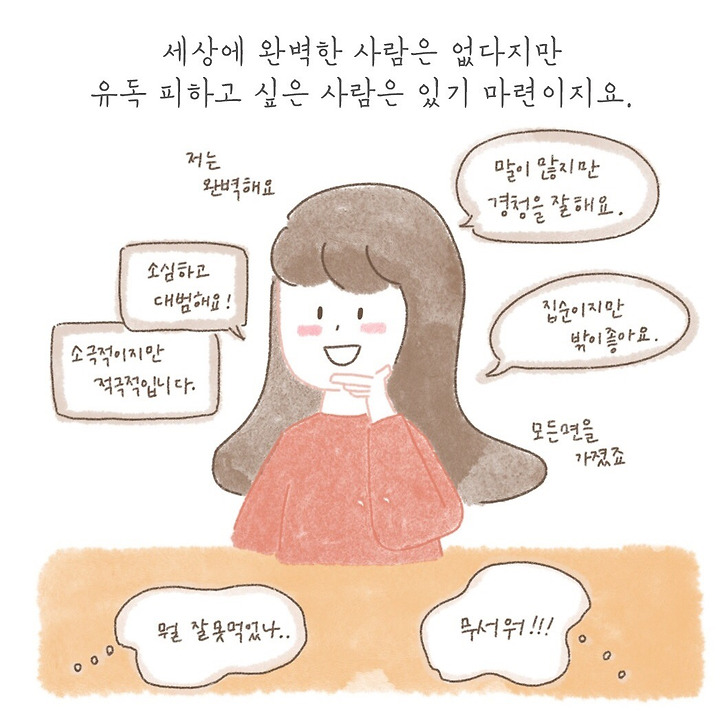 세상에 완벽한 사람은 없다지만
유독 피하고 싶은 사람은 있기 마련이지요.
저는
완벽해요
말이 많지만
경청을 잘해요.
소심하고
대범해요!
소극적이지만
적극적입니다.
집순이지만
밖이좋아요.
모든면을
가졌죠
뭘 잘못먹었나..
무서워!!!